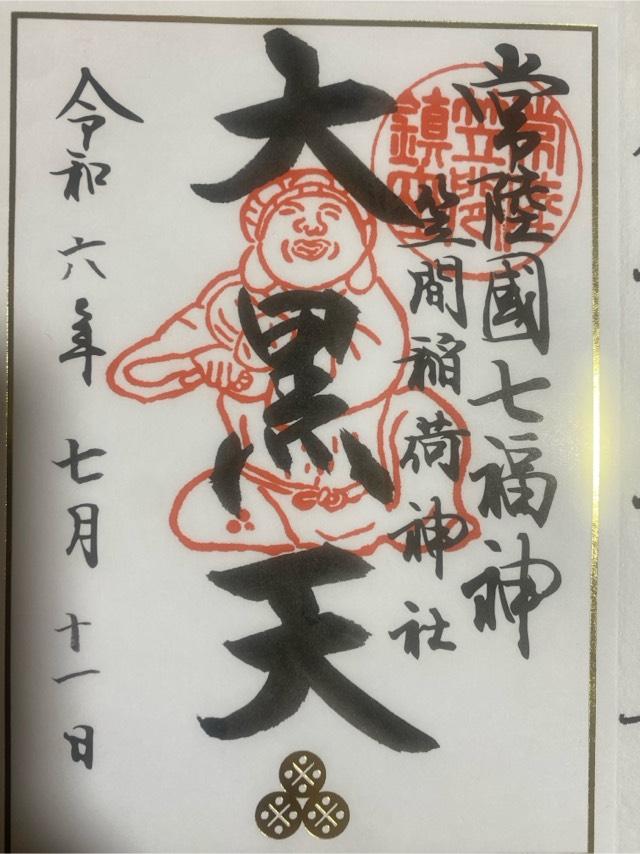 常陸國七福神
笠間稲荷神社
大黒天
令和六年七月十一日